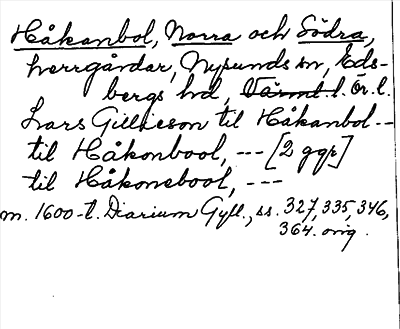 Håkanbol, Norra och Södra,
herrgårdar, Nysunds sn, Eds-
bergs hd, Värml. l. Ör. l.
Lars Gillieson til Håkanbol --
til Håkonbool, --- [2 ggr]
til Håkonebool, ---
m. 1600-t. Diarium Gyll., ss. 327, 335, 346,
364. orig.